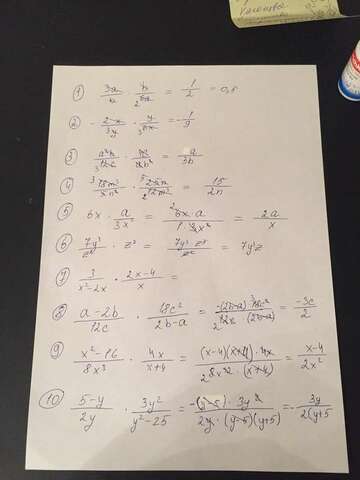 ① 3a/b · b/6a = 1/2 = 0,5
② - 2x/3y · y/6x = - 1/9
③ a²b/12c · 4c/b² = a/3b
④ · = 15/2n
⑤ 6x · a/3x² = 6x·a/3x² = 2a/x
⑥ 7y²/z² · z³ = 7y² z³/z² = 7y²z
⑦ 3/x²-2x · 2x-4/x =
⑧ a-2b/12c · 18c²/2b-a = -(2b-a) 18c²/12c (2b-a) = -3c/2
⑨ x²-16/8x³ · 4x/x+4 = (x-4)(x+4)·4x/8x³·(x+4) = x-4/2x²
⑩ 5-y/2y · 3y²/y²-25 = -(y-5)·3y²/2y·(y-5)(y+5) = - 3y/2(y+5